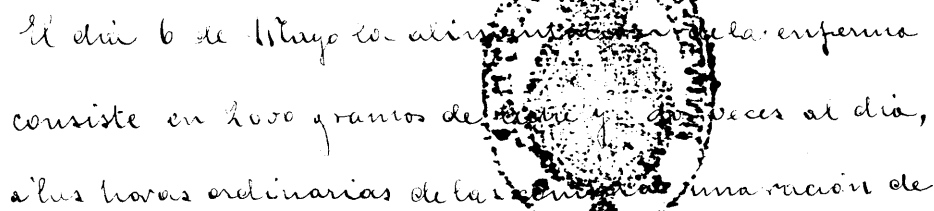 El dia 6 de Mayo la alimentacion de la enferma
consiste en 2000 gramos de leche y dos veces al dia,
á las horas ordinarias de las comidas una ración de